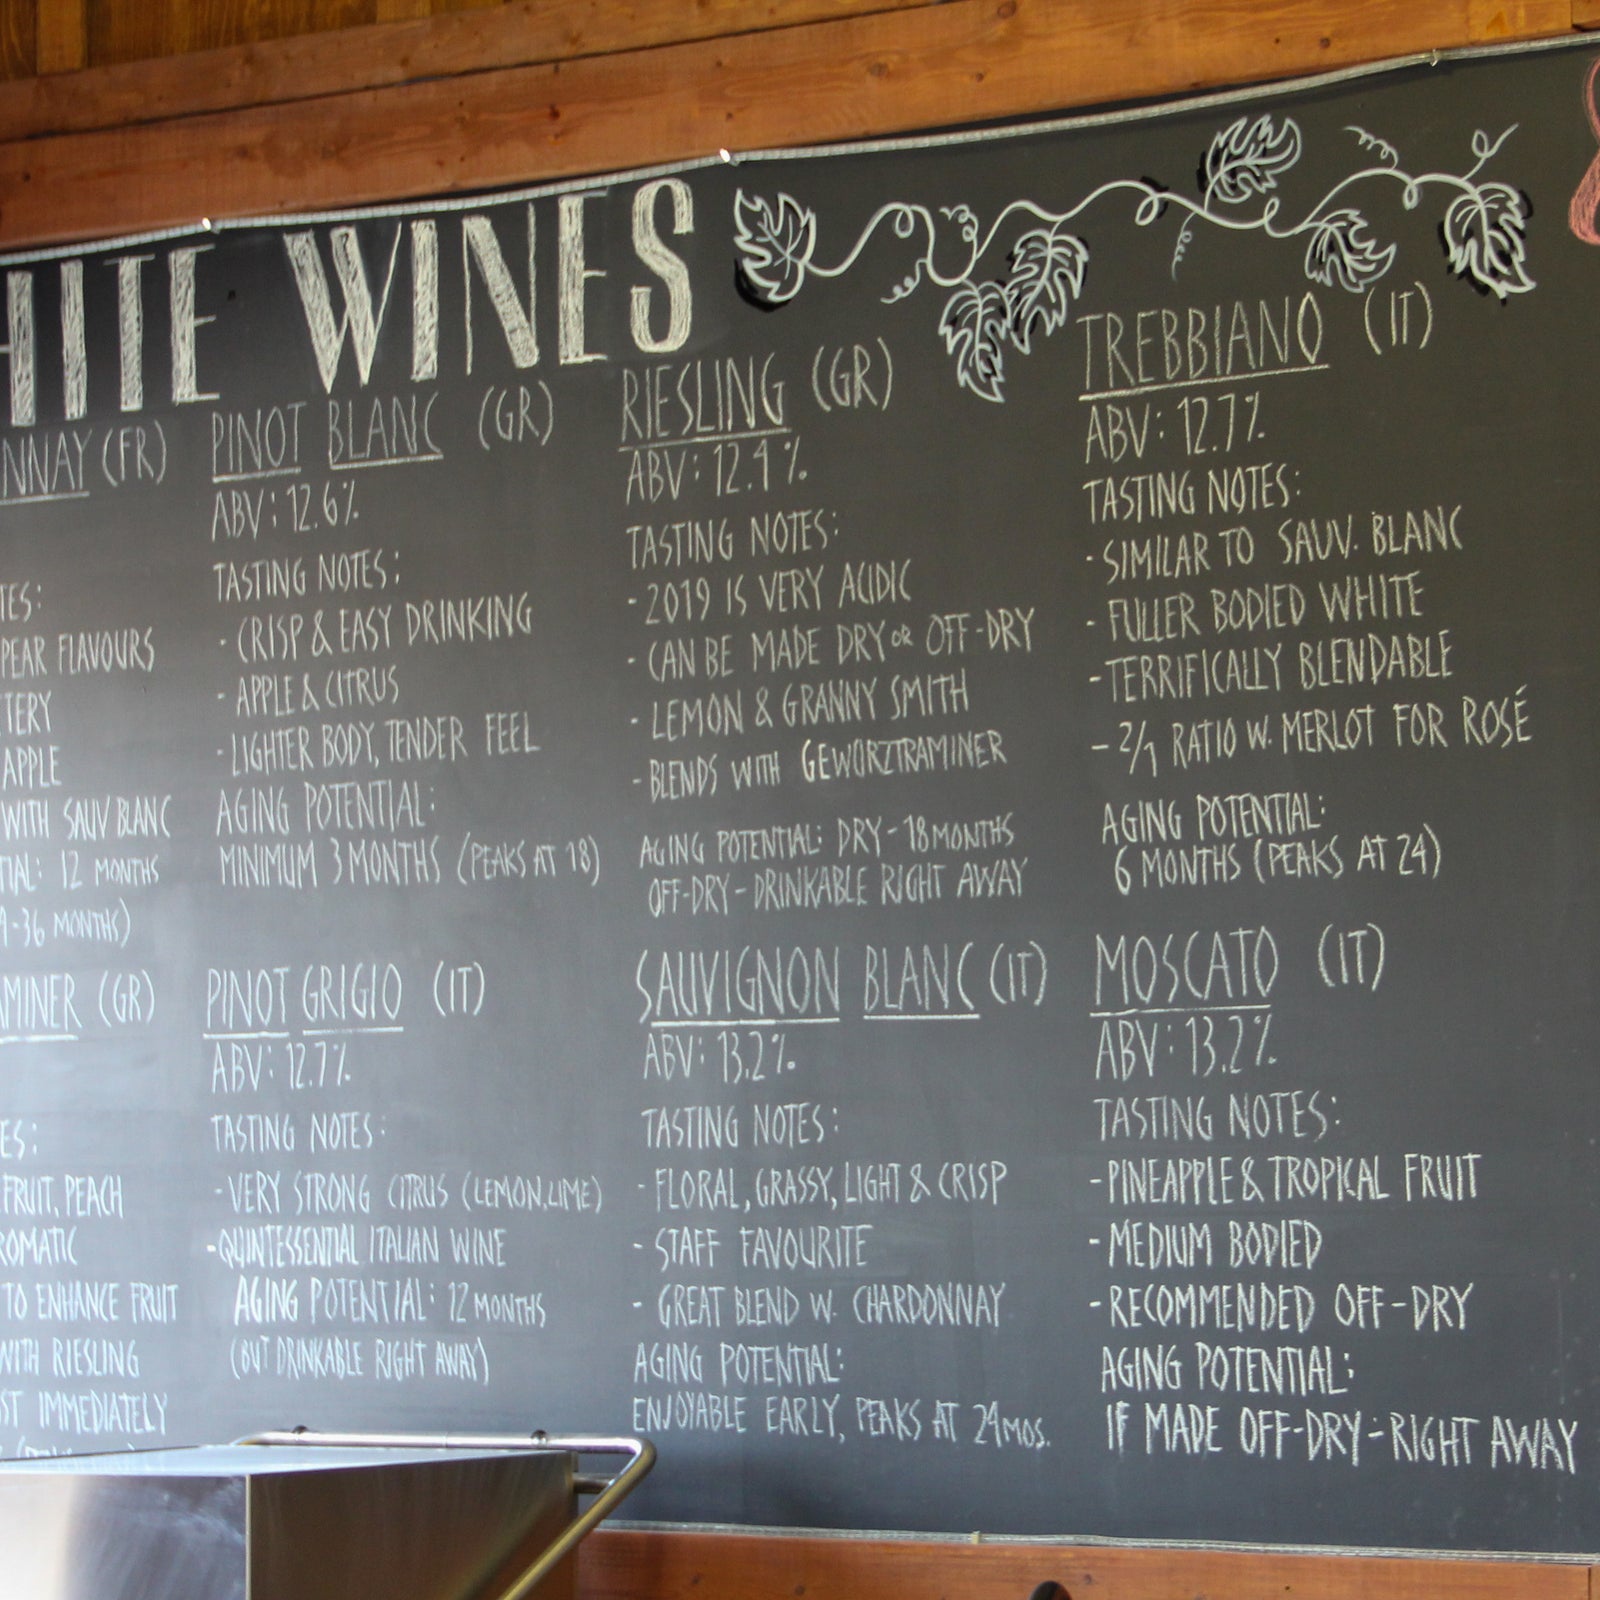 HITE WINES
NNAY (FR)
TES:
PEAR FLAVOURS
TERY
APPLE
WITH SAUV BLANC
TIAL: 12 MONTHS
-36 MONTHS)
PINOT BLANC (GR)
ABV: 12.6%
TASTING NOTES:
- CRISP & EASY DRINKING
- APPLE & CITRUS
- LIGHTER BODY, TENDER FEEL
AGING POTENTIAL:
MINIMUM 3 MONTHS (PEAKS AT 18)
RIESLING (GR)
ABV: 12.4%
TASTING NOTES:
- 2019 IS VERY ACIDIC
- CAN BE MADE DRY OR OFF-DRY
- LEMON & GRANNY SMITH
- BLENDS WITH GEWURZTRAMINER
AGING POTENTIAL: DRY - 18 MONTHS
OFF-DRY - DRINKABLE RIGHT AWAY
TREBBIANO (IT)
ABV: 12.7%
TASTING NOTES:
- SIMILAR TO SAUV. BLANC
- FULLER BODIED WHITE
- TERRIFICALLY BLENDABLE
- 2/1 RATIO W. MERLOT FOR ROSÉ
AGING POTENTIAL:
6 MONTHS (PEAKS AT 24)
AMINER (GR)
ES:
FRUIT, PEACH
ROMATIC
TO ENHANCE FRUIT
WITH RIESLING
ST IMMEDIATELY
PINOT GRIGIO (IT)
ABV: 12.7%
TASTING NOTES:
- VERY STRONG CITRUS (LEMON, LIME)
- QUINTESSENTIAL ITALIAN WINE
AGING POTENTIAL: 12 MONTHS
(BUT DRINKABLE RIGHT AWAY)
SAUVIGNON BLANC (IT)
ABV: 13.2%
TASTING NOTES:
- FLORAL, GRASSY, LIGHT & CRISP
- STAFF FAVOURITE
- GREAT BLEND W. CHARDONNAY
AGING POTENTIAL:
ENJOYABLE EARLY, PEAKS AT 24 MOS.
MOSCATO (IT)
ABV: 13.2%
TASTING NOTES:
- PINEAPPLE & TROPICAL FRUIT
- MEDIUM BODIED
- RECOMMENDED OFF-DRY
AGING POTENTIAL:
IF MADE OFF-DRY - RIGHT AWAY